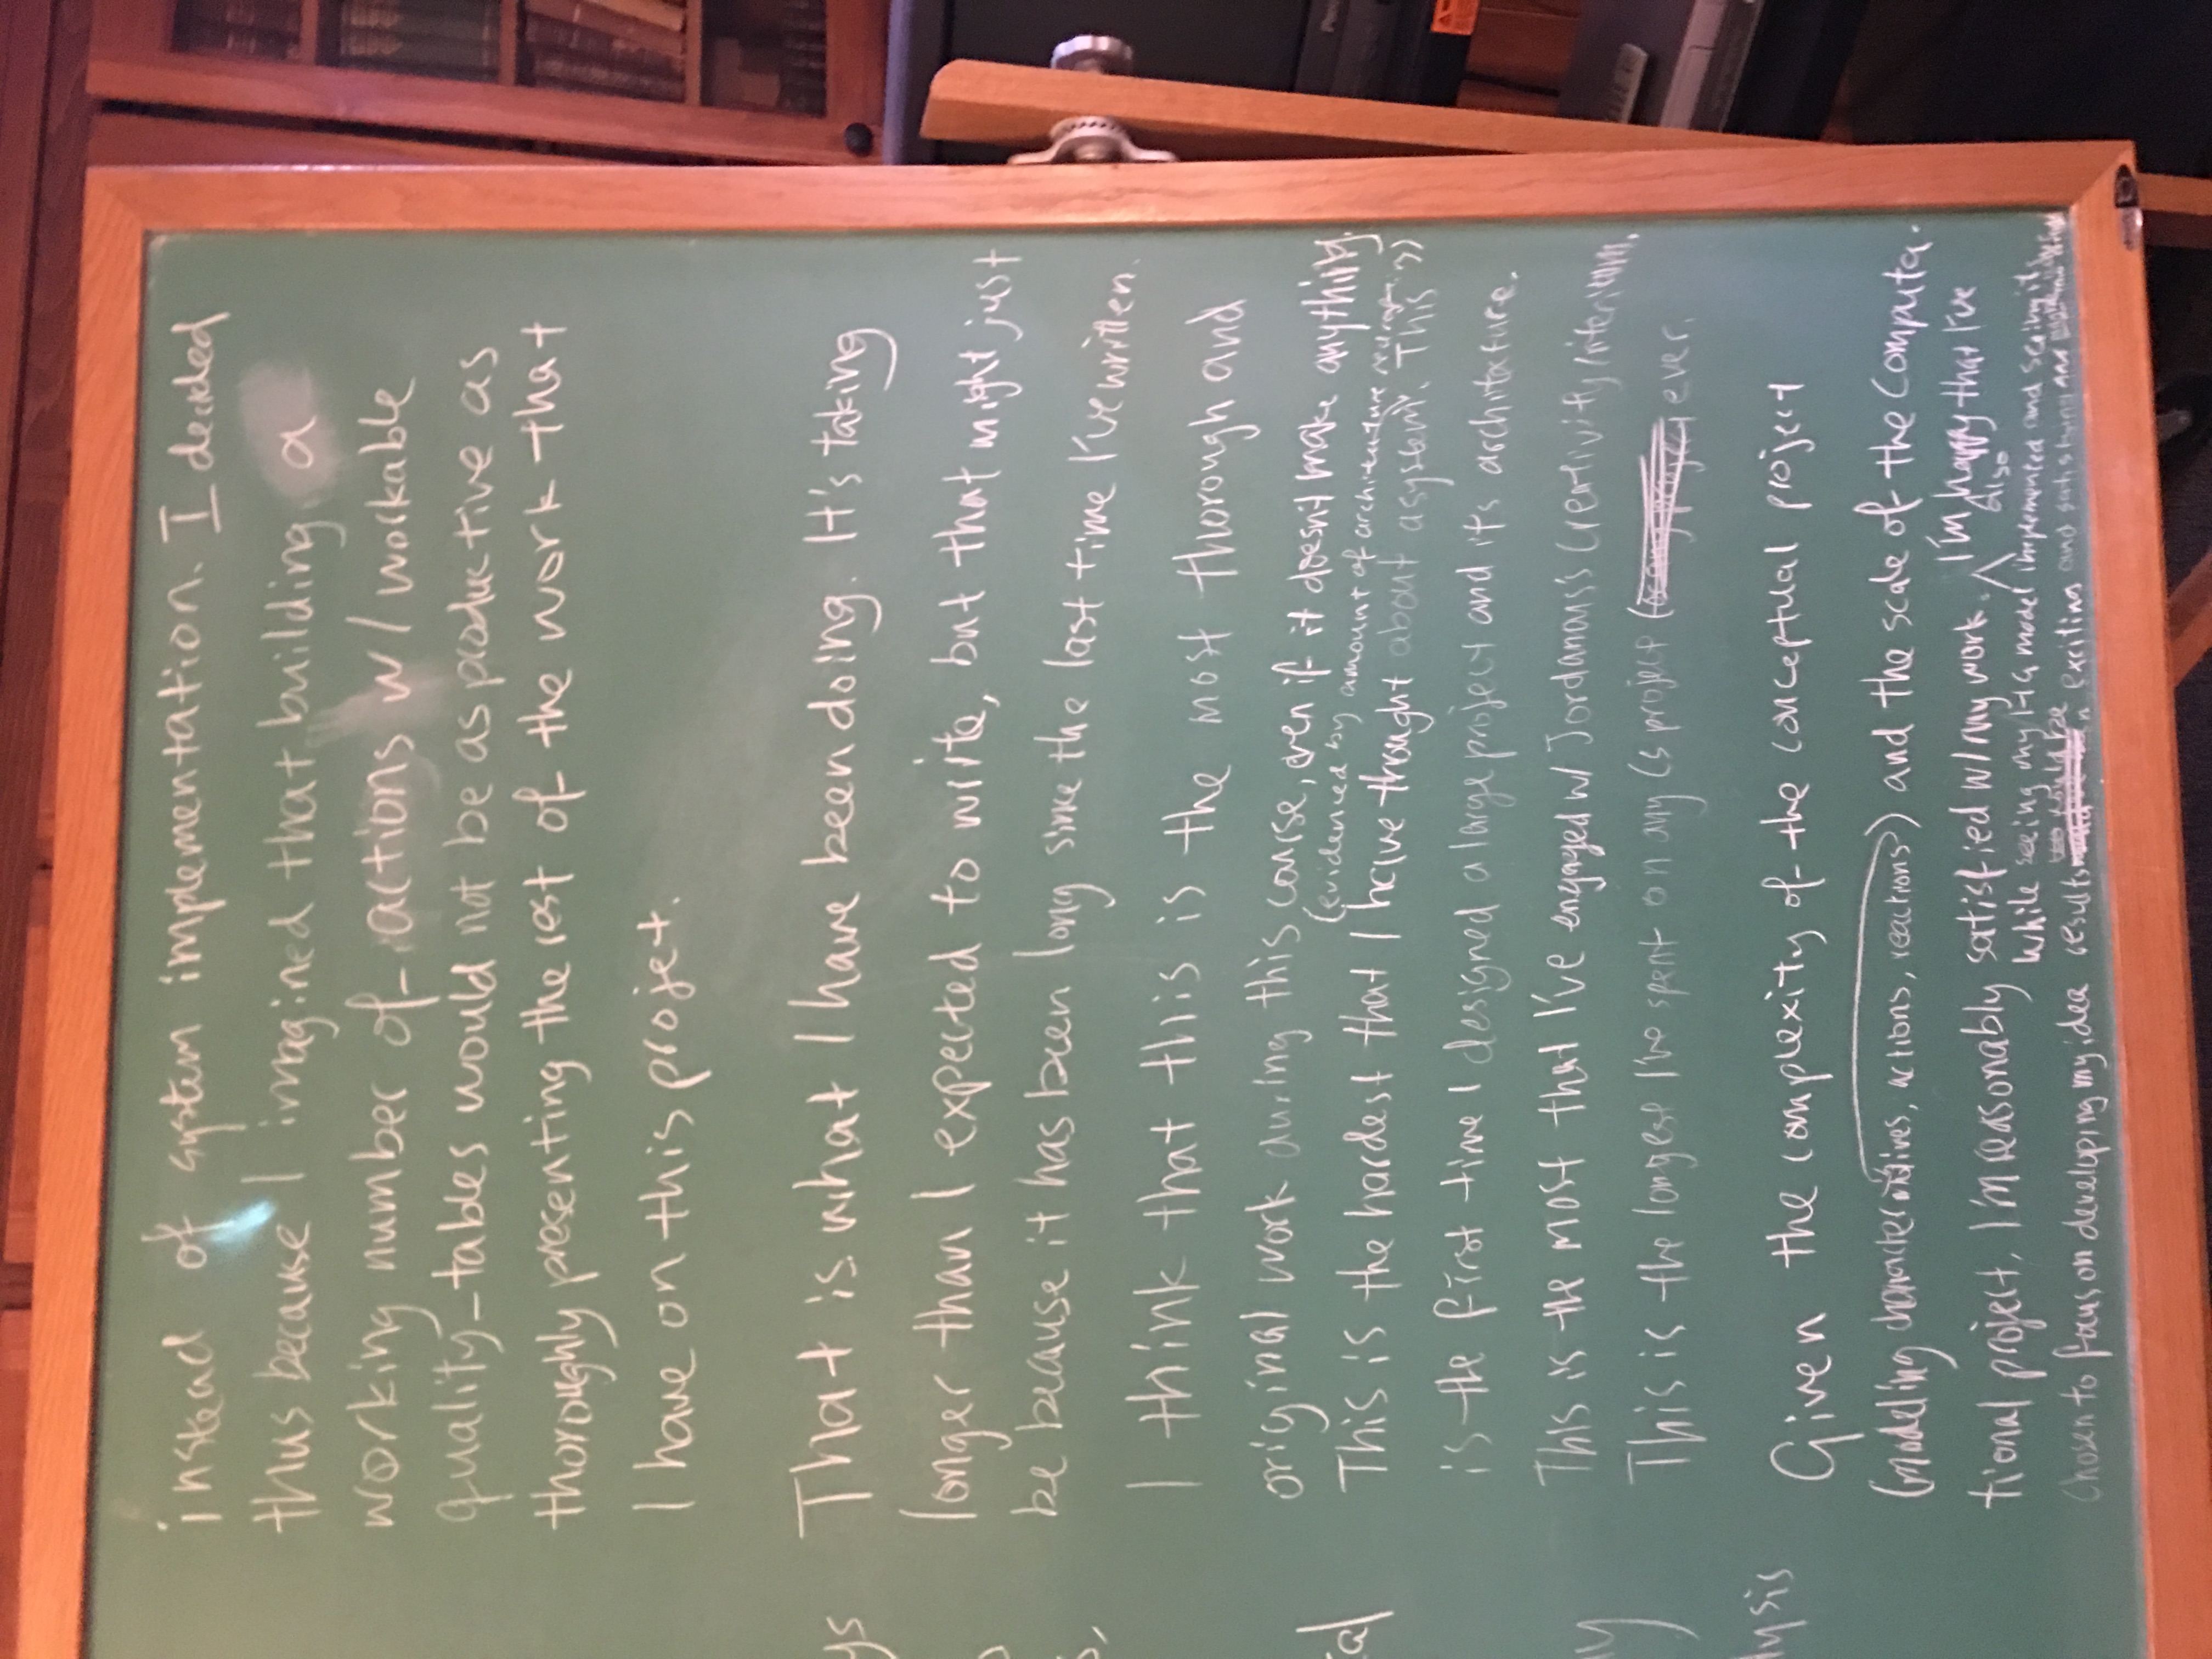 instead of system implementation. I decided
thus because I imagined that building a
working number of actions w/ workable
quality-tables would not be as productive as
thoroughly presenting the rest of the work that
I have on this projet.
ys
That is what I have been doing. It's taking
longer than I expected to write, but that might just
be because it has been long since the last time I've written.
I think that this is the most thorough and
original work during this course, even if it doesn't make anything.
(evidenced by amount of architecture
al
This is the hardest that I have thought about a system. This
is the first time I designed a large project and its architecture.
This is the most that I've engaged w/ Jordanous's Creativity
y
This is the longest I've spent on any CS project ever.
lysis
Given the complexity of the conceptual project
(modeling character actions, reactions) and the scale of the Computa-
tional project, I'm reasonably satisfied w/ my work. I'm happy that I've
also
while seeing my model implemented and seeing it
chosen to focus on developing my idea results exciting and satisfying and